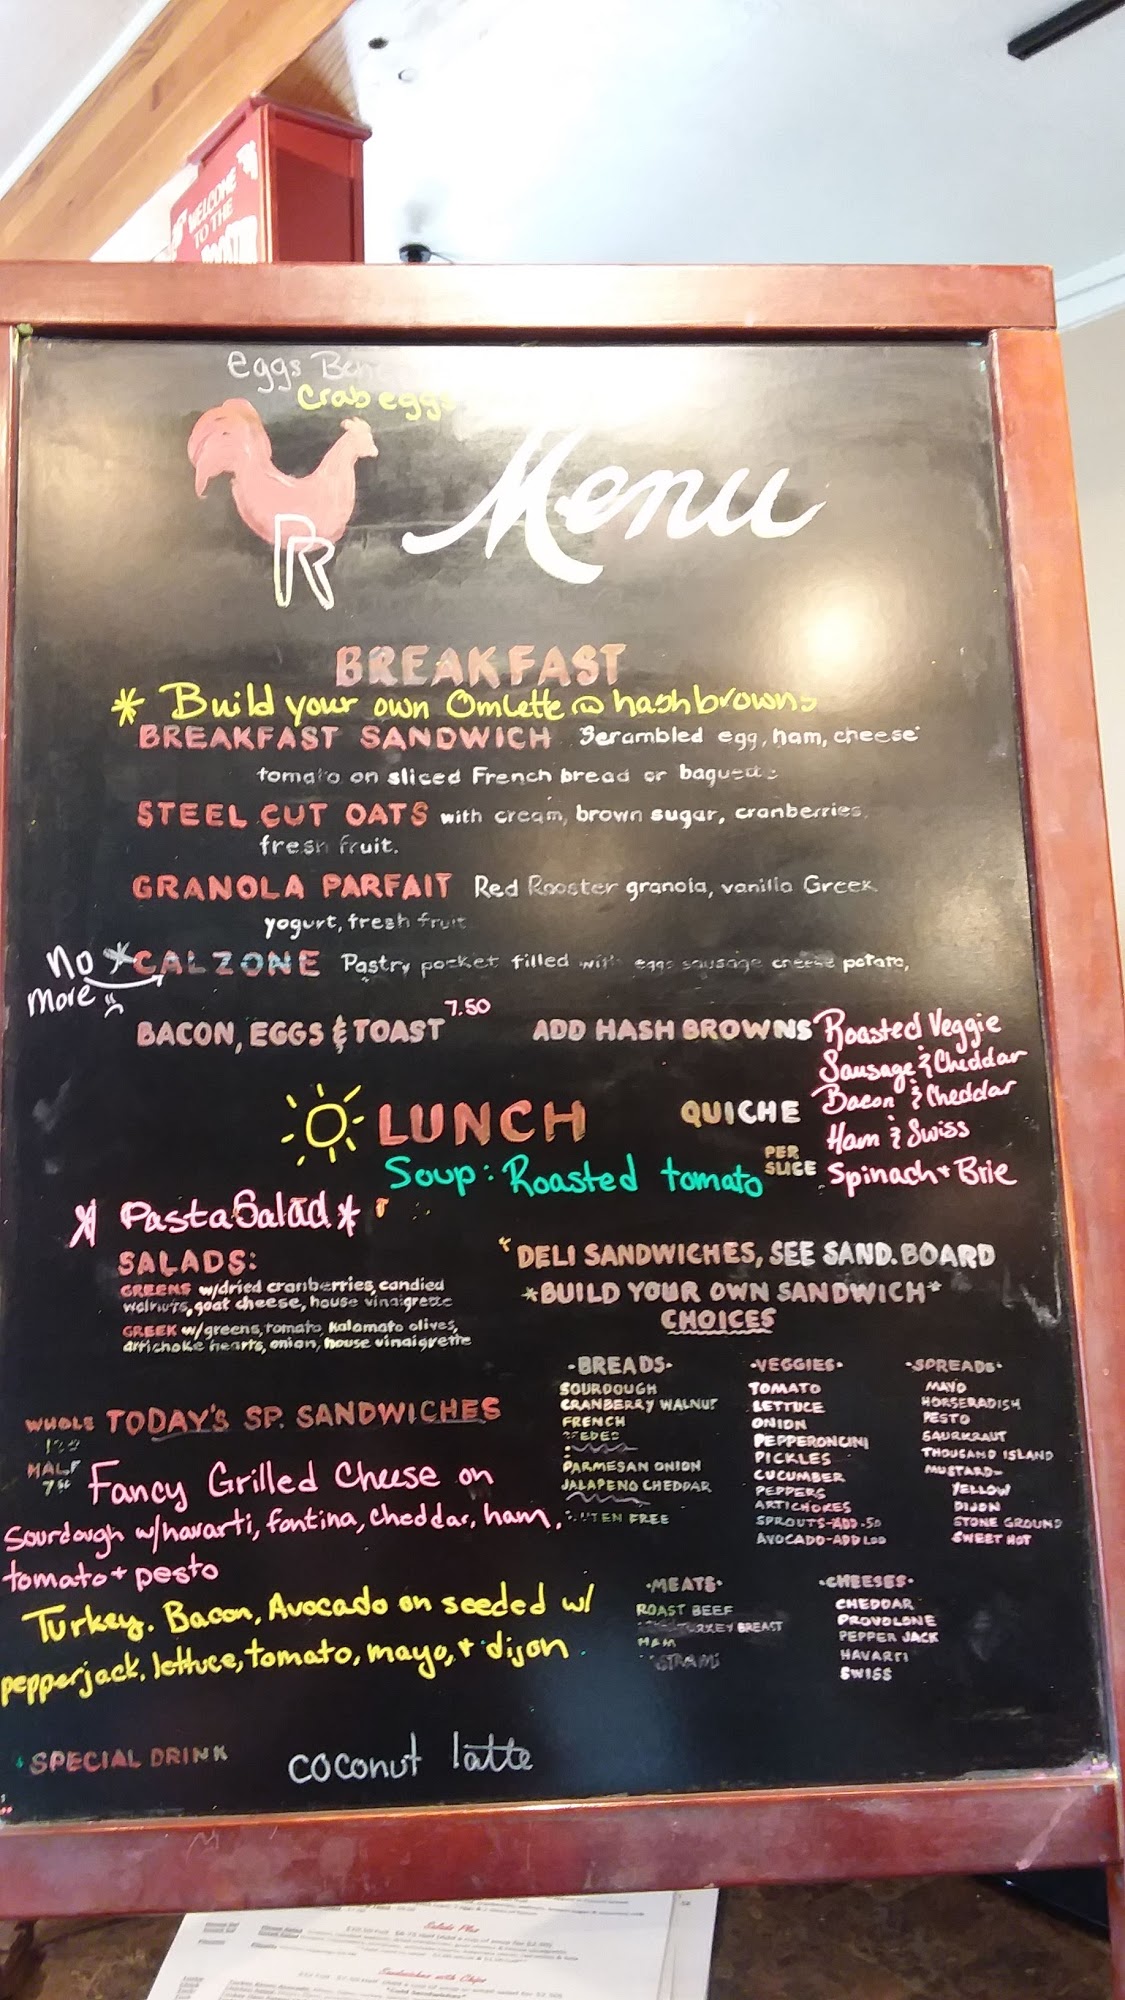 WELCOME
TO THE
eggs
Crab eggs
R Menu
BREAKFAST
* Build your own Omlette @ hashbrowns
BREAKFAST SANDWICH Scrambled egg, ham, cheese
tomato on sliced French bread or baguette
STEEL CUT OATS with cream, brown sugar, cranberries,
fresh fruit.
GRANOLA PARFAIT Red Rooster granola, vanilla Greek
yogurt, fresh fruit
No more * CALZONE Pastry pocket filled with eggs sausage cheese potato,
BACON, EGGS & TOAST 7.50
ADD HASH BROWNS
LUNCH
Soup: Roasted tomato
QUICHE
PER
SLICE
Roasted Veggie
Sausage & Cheddar
Bacon & Cheddar
Ham & Swiss
Spinach + Brie
* Pasta Salad *
SALADS:
GREENS w/dried cranberries, candied
walnuts, goat cheese, house vinaigrette
GREEK w/greens, tomato, kalamato olives,
artichoke hearts, onion, house vinaigrette
DELI SANDWICHES, SEE SAND. BOARD
*BUILD YOUR OWN SANDWICH*
CHOICES
·BREADS·
SOURDOUGH
CRANBERRY WALNUT
FRENCH
PARMESAN ONION
JALAPENO CHEDDAR
FREE
·VEGGIES·
TOMATO
LETTUCE
ONION
PEPPERONCINI
PICKLES
CUCUMBER
PEPPERS
ARTICHOKES
SPROUTS-ADD .50
AVOCADO-ADD 1.00
·SPREADS·
MAYO
HORSERADISH
PESTO
SAURKRAUT
THOUSAND ISLAND
MUSTARD-
YELLOW
DIJON
STONE GROUND
SWEET HOT
WHOLE
HALF
TODAY'S SP. SANDWICHES
Fancy Grilled Cheese on
Sourdough w/havarti, fontina, cheddar, ham,
tomato + pesto
Turkey. Bacon, Avocado on seeded w/
pepperjack, lettuce, tomato, mayo, + dijon
·MEATS·
ROAST BEEF
TURKEY BREAST
HAM
·CHEESES·
CHEDDAR
PROVOLONE
PEPPER JACK
HAVARTI
SWISS
SPECIAL DRINK coconut latte
Salads Plus
Sandwiches with Chips